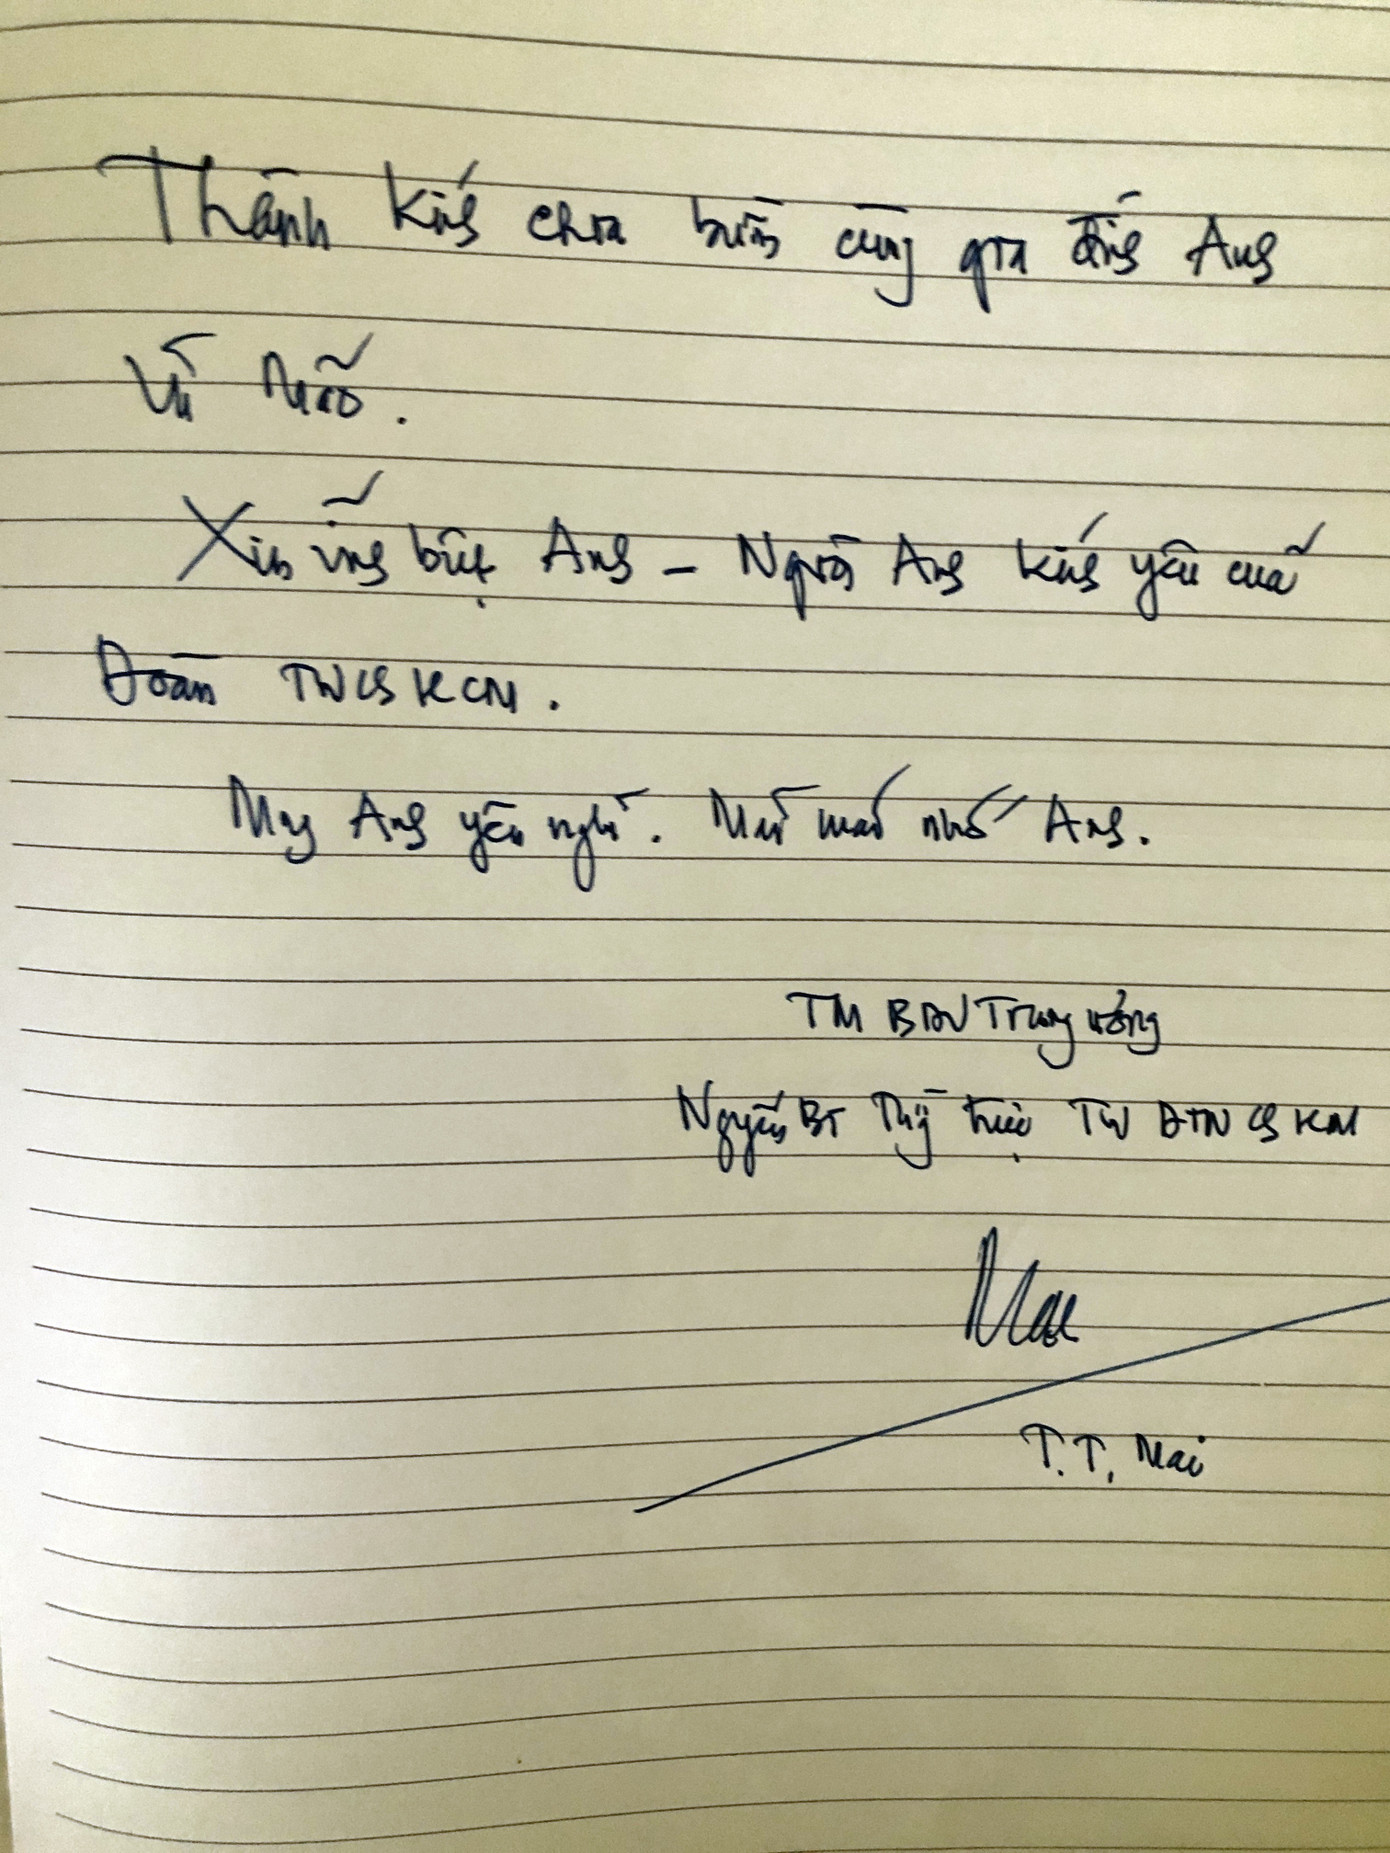 Thành kính chia buồn cùng gia đình Anh
Vũ Mão.
Xin vĩnh biệt Anh – Người Anh kính yêu của
Đoàn TNCS HCM.
Mong Anh yên nghỉ. Mãi mãi nhớ Anh.
TM BDV Trung ương
Nguyên BT Thường trực TW ĐTNCS HCM
Mai
T.T. Mai